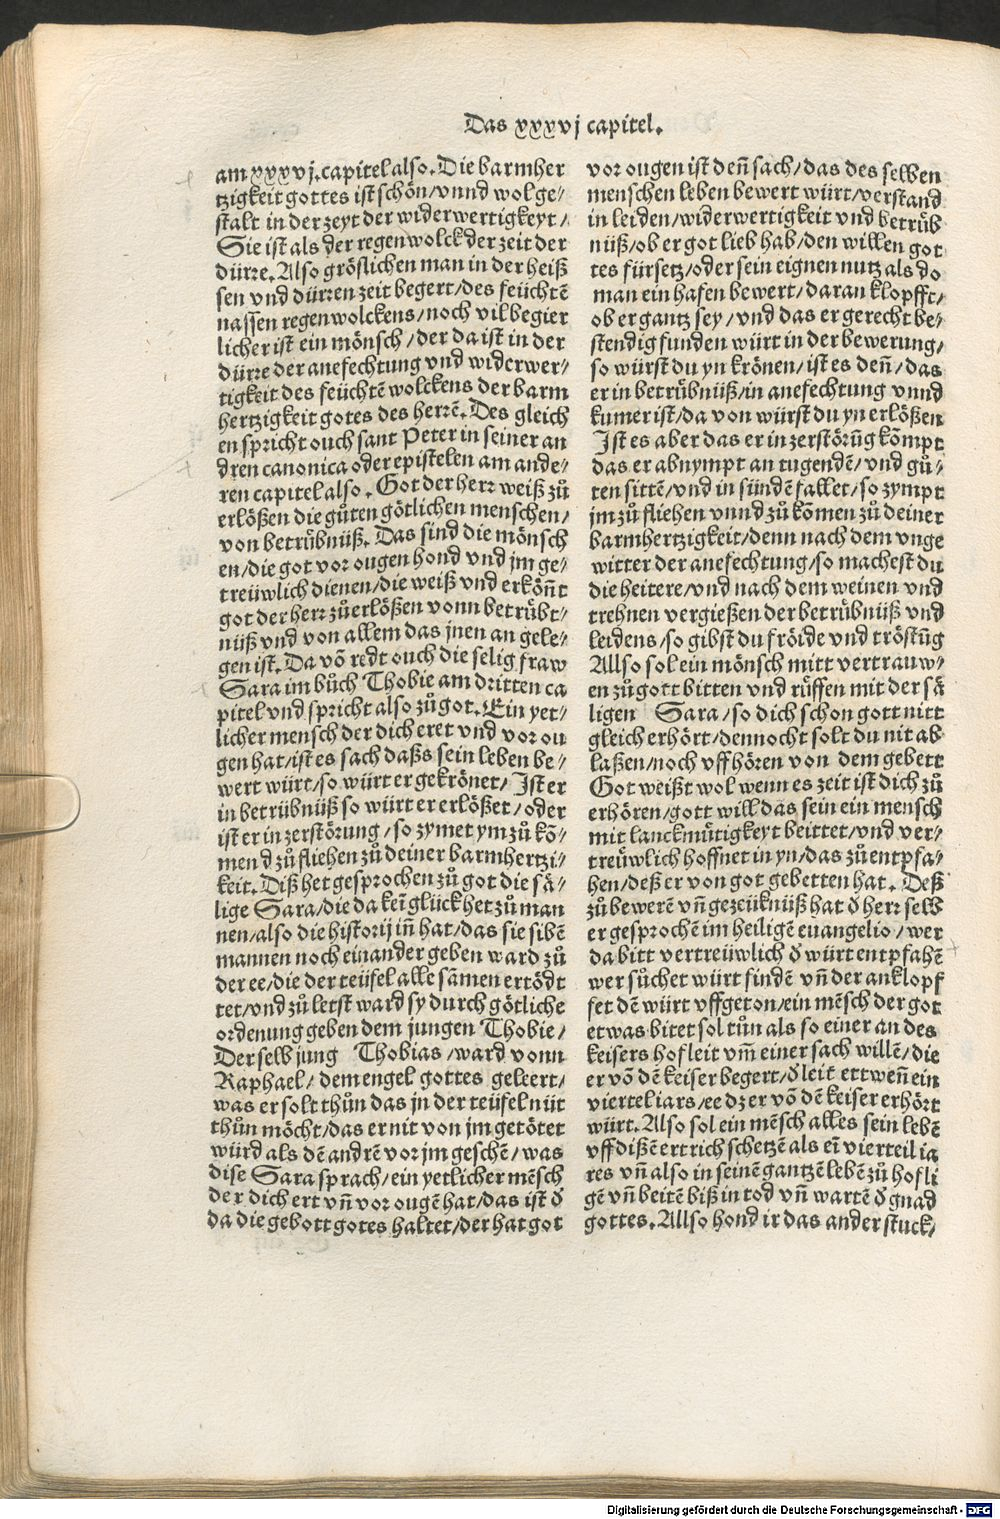 Das xxxvj capitel.
am xxxvj. capitel also. Die barmher
tzigkeit gottes ist schön/ vnnd wolge⸗
stalt in der zeyt der widerwertigkeyt/
Sie ist als der regenwolck der zeit der
dürre. Also gröslichen man in der heiß
sen vnd dürren zeit begert/ des feüchtē
nassen regenwolckens/ noch vil begier
licher ist ein mönsch/ der da ist in der
dürre der anefechtung vnd widerwer⸗
tigkeit des feüchtē wolckens der barm
hertzigkeit gotes des herrē. Des gleich
en spricht ouch sant Peter in seiner an
dren canonica oder epistelen am ande⸗
ren capitel also. Got der herr weiß zů
erlößen die gůten götlichen menschen/
von betrübnüß. Das sind die mönsch
en/ die got vor ougen hond vnd jm ge⸗
treüwlich dienen/ die weiß vnd erkōnt
got der herr zů erlößen vonn betrübt⸗
nüß vnd von allem das jnen an gele⸗
gen ist. Da vō redt ouch die selig fraw
Sara im bůch Thobie am dritten ca
pitel vnd spricht also zů got. Ein yet⸗
licher mensch der dich eret vnd vor ou
gen hat/ ist es sach daßs sein leben be⸗
wert würt/ so würt er gekrönet/ Ist er
in betrübnüß so würt er erlößet/ oder
ist er in zerstörung/ so zymet ym zů kō⸗
men d zů fliehen zů deiner barmhertzi⸗
keit. Diß het gesprochen zů got die sä⸗
lige Sara/ die da keī glück het zů man
nen/ also die historij iñ hat/ das sie sibē
mannen noch einander geben ward zů
der ee/ die der teüfel alle sāmen ertödt
tet/ vnd zů letst ward sy durch götliche
ordenung geben dem jungen Thobie/
Der selb jung Thobias/ ward vonn
Raphael/ dem engel gottes geleert/
was er solt thůn das jn der teüfel nüt
thůn möcht/ das er nit von jm getötet
würd als dē andrē vor jm geschē/ was
dise Sara sprach/ ein yetlicher mēsch
der dich ert vñ vor ougē hat/ das ist ð
da die gebott gotes haltet/ der hat got
vor ougen ist deñ sach/ das des selben
menschen leben bewert würt/ verstand
in leiden/ widerwertigkeit vnd betrüb
nüß/ ob er got lieb hab/ den willen got
tes fürsetz/ oder sein eignen nutz als do
man ein hafen bewert/ daran klopfft/
ob er gantz sey/ vnd das er gerecht be⸗
stendig funden würt in der bewerung/
so würst du yn krönen/ ist es deñ/ das
er in betrübnüß/ in anefechtung vnnd
kumer ist/ da von würst du yn erlößen
Ist es aber das er in zerstörūg kompt
das er abnympt an tugendē/ vnd gů⸗
ten sittē/ vnd in sündē fallet/ so zympt
jm zů fliehen vnnd zů kōmen zů deiner
barmhertzigkeit/ denn nach dem vnge
witter der anefechtung/ so machest du
die heitere/ vnd nach dem weinen vnd
trehnen vergießen der betrübnüß vnd
leidens/ so gibst du fröide vnd tröstūg
Allso sol ein mönsch mitt vertrauw⸗
en zů gott bitten vnd rüffen mit der sä
ligen Sara/ so dich schon gott nitt
gleich erhört/ dennocht solt du nit ab
laßen/ noch vff hören von dem gebett
Got weißt wol wenn es zeit ist dich zů
erhören/ gott will das sein ein mensch
mit lanckmütigkeyt beittet/ vnd ver⸗
treüwlich hoffnet in yn/ das zů entpfa⸗
hen/ deß er von got gebetten hat. Deß
zů bewerē vñ gezeüknüß hat ð herr selb
er gesprochē im heiligē euangelio/ wer
da bitt vertreüwlich ð würt entpfahē
wer sůchet würt findē vñ der anklopf
fet dē würt vffgeton/ ein mēsch der got
etwas bitet sol tůn als so einer an des
keisers hof leit vm̄ einer sach willē/ die
er vō dē keiser begert/ ð leit ettweñ ein
viertel iars/ ee dz er vō dē keiser erhört
würt. Also sol ein mēsch alles sein lebē
vff dißē ertrich schetzē als eī vierteil ia
res vñ also in seinē gantzē lebē zů hofli
gē vñ beitē biß in tod vñ wartē ð gnad
gottes. Allso hond ir das ander stuck/
Digitalisierung gefördert durch die Deutsche Forschungsgemeinschaft - DFG